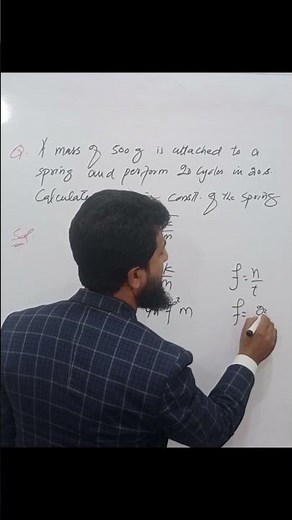 Q. A mass of 500 g is attached to a
spring and perform 20 cycles in 20s
Calculate const. of the spring
Sol
m
k
m f = n/t
m f =